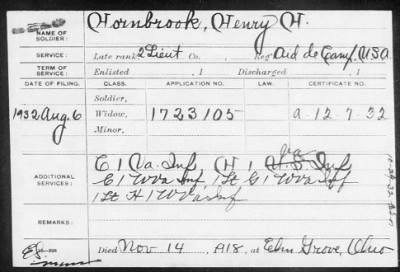 NAME OF SOLDIER: Hornbrook, Henry H.
SERVICE: Late rank 2 Lieut Reg't Aid de Camp, USA
TERM OF SERVICE: Enlisted , 1 Discharged , 1
DATE OF FILING. CLASS. APPLICATION NO. LAW. CERTIFICATE NO.
Soldier,
1932 Aug. 6 Widow, 1723105 a-12-7-32
Minor,
ADDITIONAL SERVICES: C 1 Va. Inf, H 1 Va Inf
C 1 W Va Inf, 1st G 1 W Va Inf
1st H 1 W Va Inf
REMARKS:
Died Nov 14, 1918, at Elm Grove, Ohio